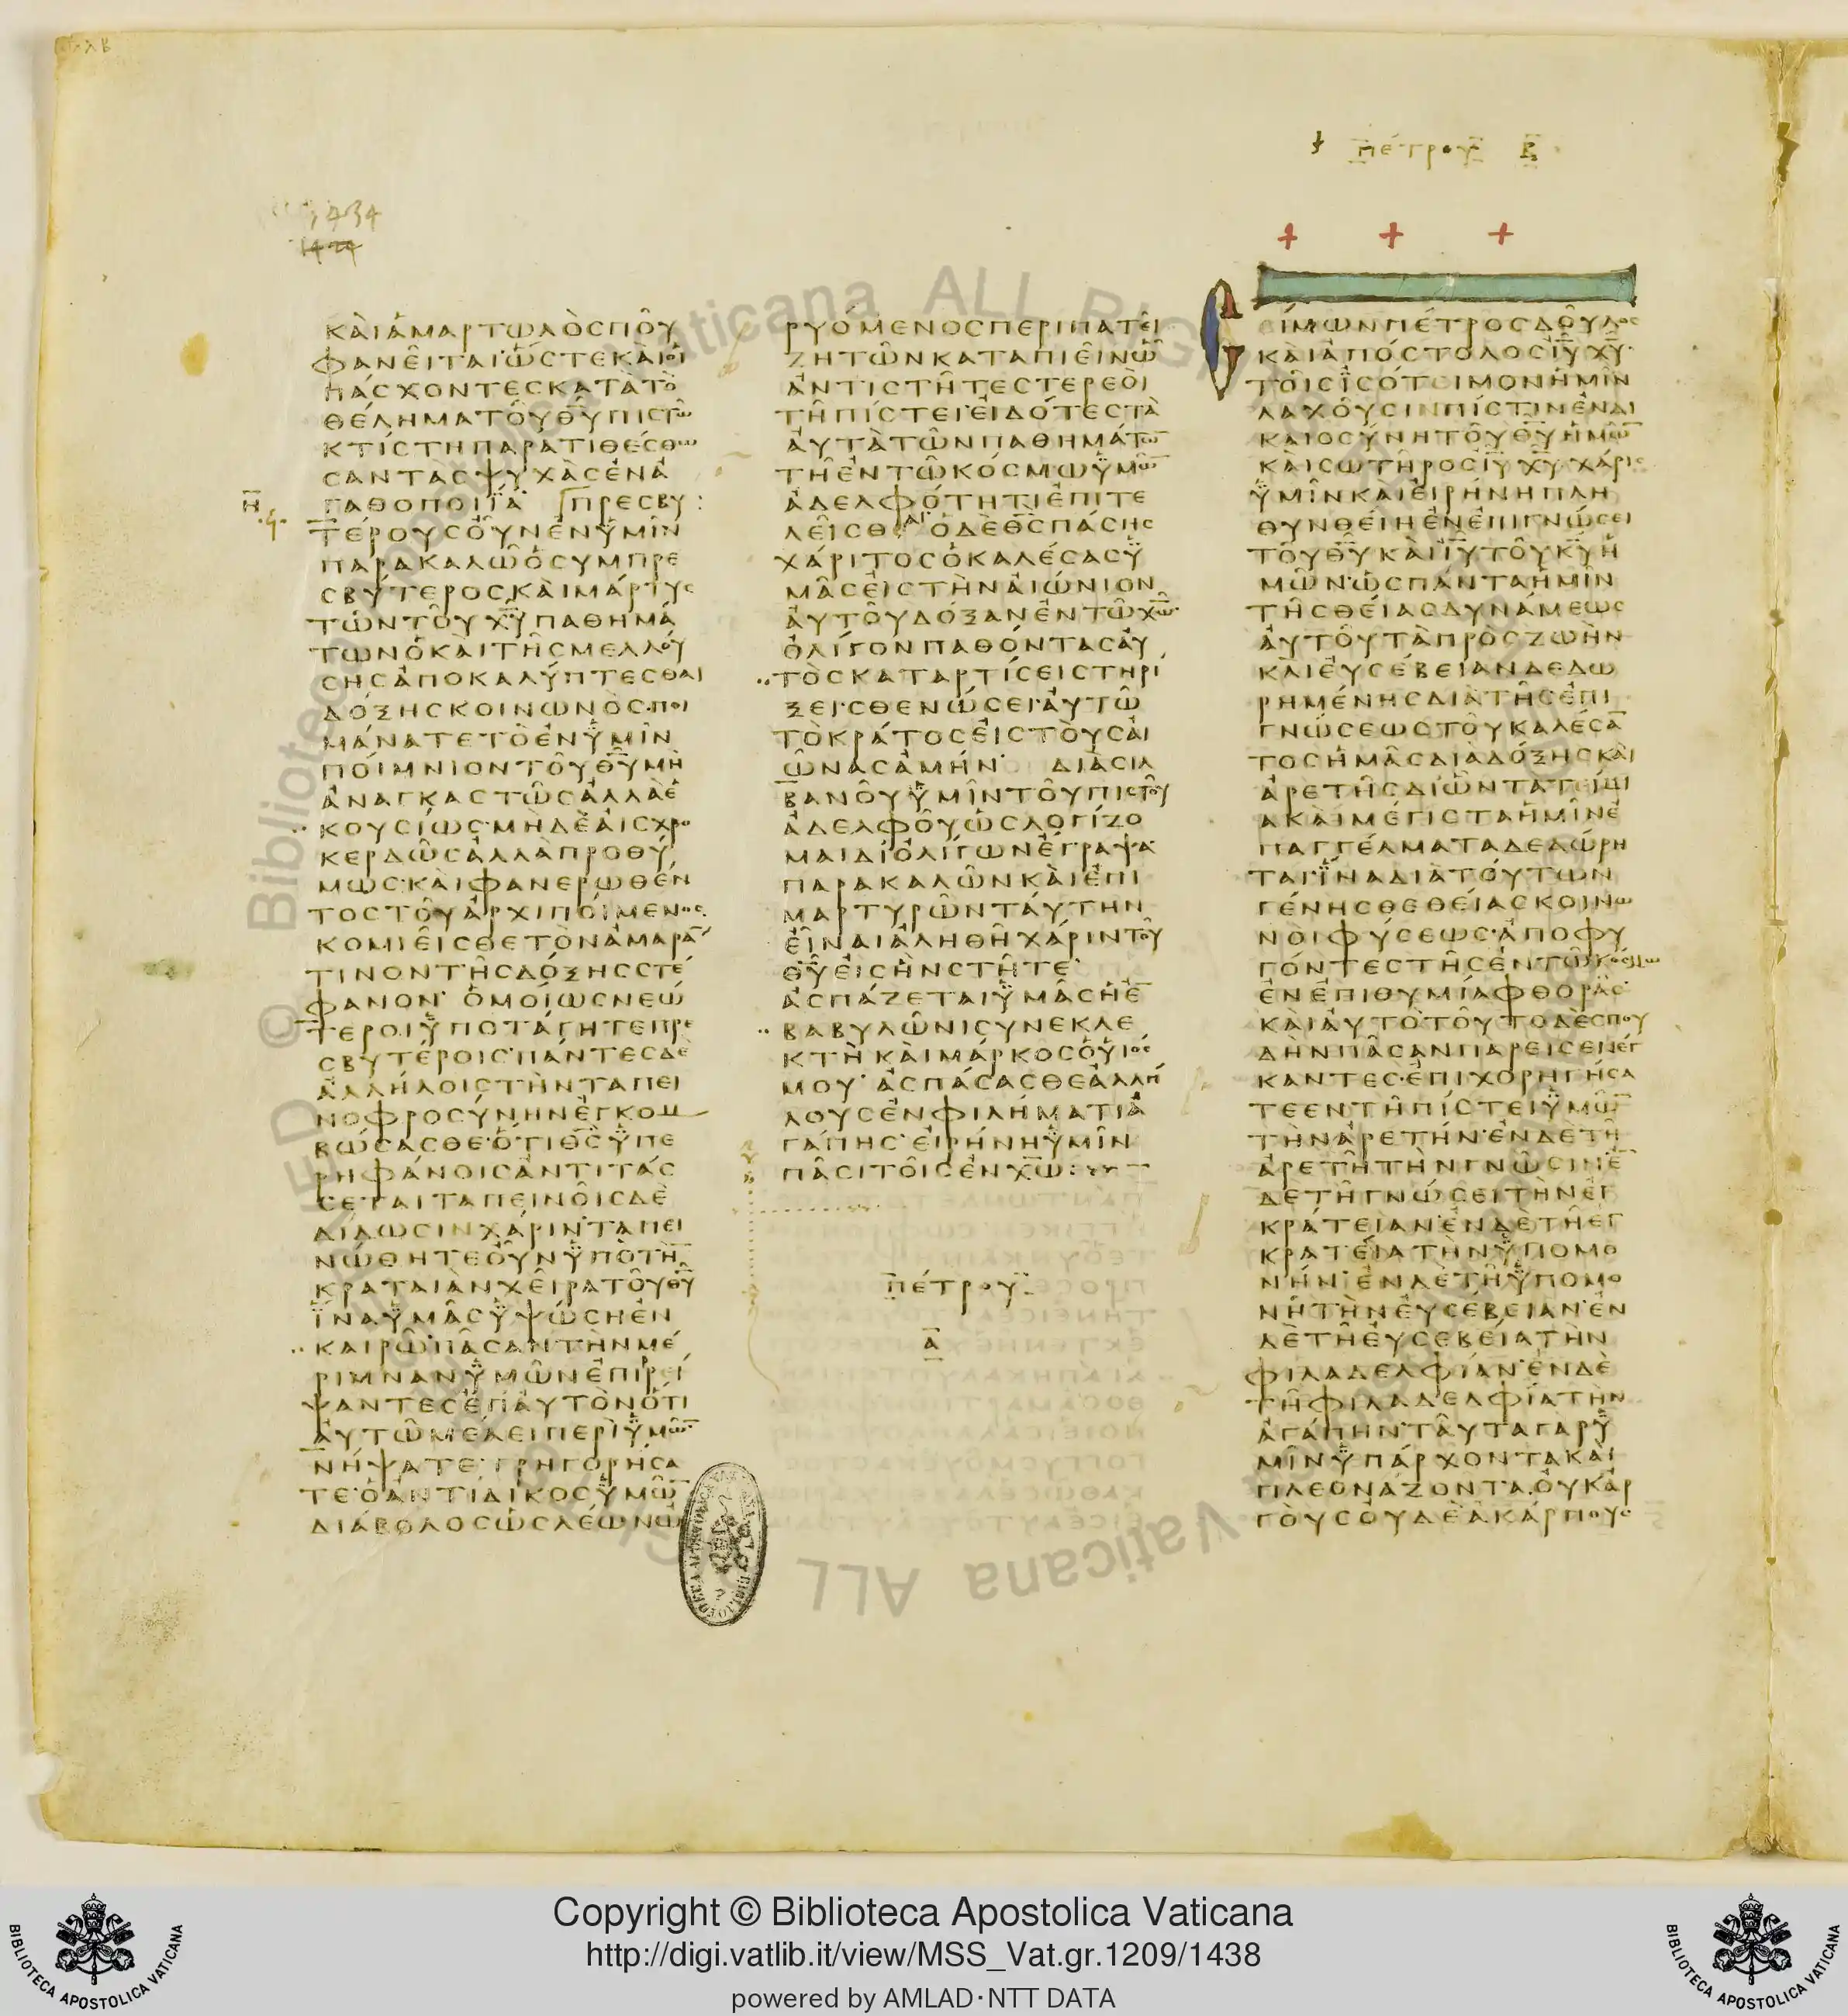 πέτρου β
1434
ΚΑΙΑΜΑΡΤΩΛΟΣΠΟΥ
ΦΑΝΕΙΤΑΙΩΣΤΕΚΑΙΟΙ
ΠΑΣΧΟΝΤΕΣΚΑΤΑΤΟ
ΘΕΛΗΜΑΤΟΥΘΥΠΙΣΤΩ
ΚΤΙΣΤΗΠΑΡΑΤΙΘΕΣΘΩ
ΣΑΝΤΑΣΨΥΧΑΣΕΝΑ
Η
ΓΑΘΟΠΟΙΪΑ ΠΡΕΣΒΥ
ΤΕΡΟΥΣΟΥΝΕΝΫΜΙΝ
ΠΑΡΑΚΑΛΩΟΣΥΜΠΡΕ
ΣΒΥΤΕΡΟΣΚΑΙΜΑΡΤΥΣ
ΤΩΝΤΟΥΧΥΠΑΘΗΜΑ
ΤΩΝΟΚΑΙΤΗΣΜΕΛΛΟΥ
ΣΗΣΑΠΟΚΑΛΥΠΤΕΣΘΑΙ
ΔΟΞΗΣΚΟΙΝΩΝΟΣ·ΠΟΙ
ΜΑΝΑΤΕΤΟΕΝΫΜΙΝ
ΠΟΙΜΝΙΟΝΤΟΥΘΥΜΗ
ΑΝΑΓΚΑΣΤΩΣΑΛΛΑΕ
ΚΟΥΣΙΩΣ·ΜΗΔΕΑΙΣΧΡΟ
ΚΕΡΔΩΣΑΛΛΑΠΡΟΘΥ
ΜΩΣ·ΚΑΙΦΑΝΕΡΩΘΕΝ
ΤΟΣΤΟΥΑΡΧΙΠΟΙΜΕΝΟΣ
ΚΟΜΙΕΙΣΘΕΤΟΝΑΜΑΡΑ
ΤΙΝΟΝΤΗΣΔΟΞΗΣΣΤΕ
ΦΑΝΟΝ· ΟΜΟΙΩΣΝΕΩ
ΤΕΡΟΙΫΠΟΤΑΓΗΤΕΠΡΕ
ΣΒΥΤΕΡΟΙΣ·ΠΑΝΤΕΣΔΕ
ΑΛΛΗΛΟΙΣΤΗΝΤΑΠΕΙ
ΝΟΦΡΟΣΥΝΗΝΕΓΚΟΜ
ΒΩΣΑΣΘΕ·ΟΤΙΘΣΫΠΕ
ΡΗΦΑΝΟΙΣΑΝΤΙΤΑΣ
ΣΕΤΑΙΤΑΠΕΙΝΟΙΣΔΕ
ΔΙΔΩΣΙΝΧΑΡΙΝ·ΤΑΠΕΙ
ΝΩΘΗΤΕΟΥΝΫΠΟΤΗ
ΚΡΑΤΑΙΑΝΧΕΙΡΑΤΟΥΘΥ
ΪΝΑΫΜΑΣΫΨΩΣΗΕΝ
ΚΑΙΡΩ·ΠΑΣΑΝΤΗΝΜΕ
ΡΙΜΝΑΝΫΜΩΝΕΠΙΡΕΙ
ΨΑΝΤΕΣΕΠΑΥΤΟΝΟΤΙ
ΑΥΤΩΜΕΛΕΙΠΕΡΙΫΜΩ
ΝΗΨΑΤΕ·ΓΡΗΓΟΡΗΣΑ
ΤΕ·ΟΑΝΤΙΔΙΚΟΣΫΜΩ
ΔΙΑΒΟΛΟΣΩΣΛΕΩΝΩ
ΡΥΟΜΕΝΟΣΠΕΡΙΠΑΤΕΙ
ΖΗΤΩΝΚΑΤΑΠΙΕΙΝΩ
ΑΝΤΙΣΤΗΤΕΣΤΕΡΕΟΙ
ΤΗΠΙΣΤΕΙΕΙΔΟΤΕΣΤΑ
ΑΥΤΑΤΩΝΠΑΘΗΜΑΤΩ
ΤΗΕΝΤΩΚΟΣΜΩΫΜΩ
ΑΔΕΛΦΟΤΗΤΙΕΠΙΤΕ
ΛΕΙΣΘΑΙ·ΟΔΕΘΣΠΑΣΗΣ
ΧΑΡΙΤΟΣΟΚΑΛΕΣΑΣΫ
ΜΑΣΕΙΣΤΗΝΑΙΩΝΙΟΝ
ΑΥΤΟΥΔΟΞΑΝΕΝΤΩΧΩ·
ΟΛΙΓΟΝΠΑΘΟΝΤΑΣΑΥ
ΤΟΣΚΑΤΑΡΤΙΣΕΙΣΤΗΡΙ
ΞΕΙ·ΣΘΕΝΩΣΕΙ·ΑΥΤΩ
ΤΟΚΡΑΤΟΣΕΙΣΤΟΥΣΑΙ
ΩΝΑΣΑΜΗΝ· ΔΙΑΣΙΛ
ΒΑΝΟΥΫΜΙΝΤΟΥΠΙΣΤΟΥ
ΑΔΕΛΦΟΥΩΣΛΟΓΙΖΟ
ΜΑΙΔΙΟΛΙΓΩΝΕΓΡΑΨΑ
ΠΑΡΑΚΑΛΩΝΚΑΙΕΠΙ
ΜΑΡΤΥΡΩΝΤΑΥΤΗΝ
ΕΙΝΑΙΑΛΗΘΗΧΑΡΙΝΤΟΥ
ΘΥΕΙΣΗΝΣΤΗΤΕ·
ΑΣΠΑΖΕΤΑΙΫΜΑΣΗΕ
ΒΑΒΥΛΩΝΙΣΥΝΕΚΛΕ
ΚΤΗΚΑΙΜΑΡΚΟΣΟΫΙΟΣ
ΜΟΥ· ΑΣΠΑΣΑΣΘΕΑΛΛΗ
ΛΟΥΣΕΝΦΙΛΗΜΑΤΙΑ
ΓΑΠΗΣ·ΕΙΡΗΝΗΫΜΙΝ
ΠΑΣΙΤΟΙΣΕΝΧΩ:
πέτρου
α
ΣΙΜΩΝΠΕΤΡΟΣΔΟΥΛΟΣ
ΚΑΙΑΠΟΣΤΟΛΟΣΙΥΧΥ·
ΤΟΙΣΪΣΟΤΕΙΜΟΝΗΜΙΝ
ΛΑΧΟΥΣΙΝΠΙΣΤΙΝΕΝΔΙ
ΚΑΙΟΣΥΝΗΤΟΥΘΥΗΜΩ
ΚΑΙΣΩΤΗΡΟΣΙΥΧΥΧΑΡΙΣ
ΫΜΙΝΚΑΙΕΙΡΗΝΗΠΛΗ
ΘΥΝΘΕΙΗΕΝΕΠΙΓΝΩΣΕΙ
ΤΟΥΘΥΚΑΙΙΥΤΟΥΚΥΗ
ΜΩΝ·ΩΣΠΑΝΤΑΗΜΙΝ
ΤΗΣΘΕΙΑΣΔΥΝΑΜΕΩΣ
ΑΥΤΟΥΤΑΠΡΟΣΖΩΗΝ
ΚΑΙΕΥΣΕΒΕΙΑΝΔΕΔΩ
ΡΗΜΕΝΗΣΔΙΑΤΗΣΕΠΙ
ΓΝΩΣΕΩΣΤΟΥΚΑΛΕΣΑ
ΤΟΣΗΜΑΣΔΙΑΔΟΞΗΣΚΑΙ
ΑΡΕΤΗΣΔΙΩΝΤΑΤΕΙΜΙ
ΑΚΑΙΜΕΓΙΣΤΑΗΜΙΝΕ
ΠΑΓΓΕΛΜΑΤΑΔΕΔΩΡΗ
ΤΑΙΪΝΑΔΙΑΤΟΥΤΩΝ
ΓΕΝΗΣΘΕΘΕΙΑΣΚΟΙΝΩ
ΝΟΙΦΥΣΕΩΣ·ΑΠΟΦΥ
ΓΟΝΤΕΣΤΗΣΕΝΤΩΚΟΣΜΩ
ΕΝΕΠΙΘΥΜΙΑΦΘΟΡΑΣ·
ΚΑΙΑΥΤΟΤΟΥΤΟΔΕΣΠΟΥ
ΔΗΝΠΑΣΑΝΠΑΡΕΙΣΕΝΕΓ
ΚΑΝΤΕΣ·ΕΠΙΧΟΡΗΓΗΣΑ
ΤΕΕΝΤΗΠΙΣΤΕΙΫΜΩ
ΤΗΝΑΡΕΤΗΝ·ΕΝΔΕΤΗ
ΑΡΕΤΗΤΗΝΓΝΩΣΙΝΕ
ΔΕΤΗΓΝΩΣΕΙΤΗΝΕΓ
ΚΡΑΤΕΙΑΝ·ΕΝΔΕΤΗΕΓ
ΚΡΑΤΕΙΑΤΗΝΫΠΟΜΟ
ΝΗΝ·ΕΝΔΕΤΗΫΠΟΜΟ
ΝΗΤΗΝΕΥΣΕΒΕΙΑΝ·ΕΝ
ΔΕΤΗΕΥΣΕΒΕΙΑΤΗΝ
ΦΙΛΑΔΕΛΦΙΑΝ·ΕΝΔΕ
ΤΗΦΙΛΑΔΕΛΦΙΑΤΗΝ
ΑΓΑΠΗΝ·ΤΑΥΤΑΓΑΡΫ
ΜΙΝΫΠΑΡΧΟΝΤΑΚΑΙ
ΠΛΕΟΝΑΖΟΝΤΑ·ΟΥΚΑΡ
ΓΟΥΣΟΥΔΕΑΚΑΡΠΟΥΣ
Copyright © Biblioteca Apostolica Vaticana
http://digi.vatlib.it/view/MSS_Vat.gr.1209/1438
powered by AMLAD·NTT DATA
BIBLIOTECA APOSTOLICA VATICANA
BIBLIOTECA APOSTOLICA VATICANA